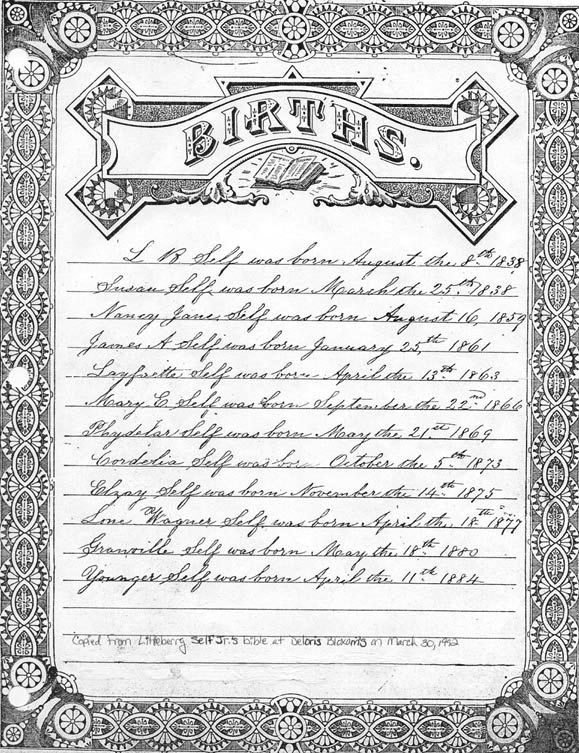 BIRTHS.
L B Self was born August the 8th 1838
Susan Self was born March the 25th 1838
Nancy Jane Self was born August 16, 1859
James A Self was born January 25, th 1861
Layfaette Self was born April the 13th 1863
Mary C Self was born September the 22nd 1866
Self was born May the 21st 1869
Cordelia Self was born October the 5th 1873
Elzay Self was born November the 14th 1875
Lone Wagner Self was born April the 18th 1877
Granville Self was born May the 18th 1880
Younger Self was born April the 11th 1884
Copied from Littleberry Self Jr.'s bible at Deloris on March 30, 1992